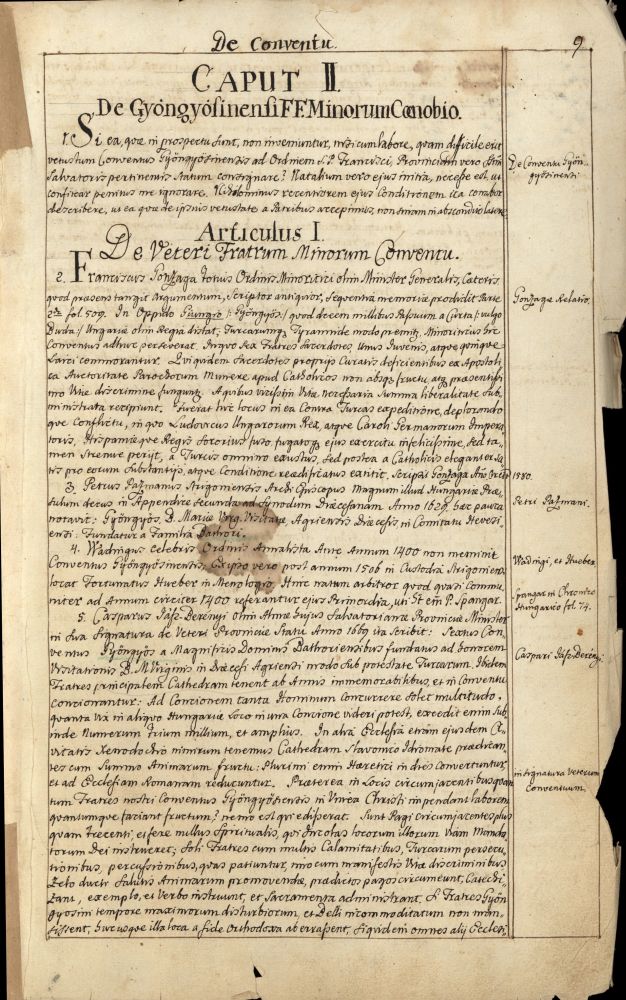 De Conventu.
9.
CAPUT II.
De Gyöngyösinensi FF. Minorum Cœnobio.
1. Si ea, quæ in prospectu sunt, non inveniuntur, nisi cum labore, quam difficile erit
vetustum Conventus Gyöngyösinensis ad Ordinem S. P. Francisci, Provinciam vero SSmi
Salvatoris pertinentis statum consignare? Natalium vero ejus initia, necesse est, ut
confitear penitus me ignorare. Nihilominus recentiorem ejus Conditionem ita conabor
describere, ut ea quæ de ipsius vetustate a Patribus accepimus, non sinam in abscondito latere.
De Conventu Gyön-
gyösinensi
Articulus I.
De Veteri Fratrum Minorum Conventu.
2. Franciscus Gonzaga totius Ordinis Minoritici olim Minister Generalis, Cæteris
quod præsens tangit Argumentum, Scriptor antiquior, sequentia memoriæ prodidit Parte
2da fol. 509. In Oppido Giungio /: Gyöngyös :/ quod decem millibus Passuum a Curta /: vulgo
Buda :/ Ungariæ olim Regia distat, Turcarumq Tyrannide modo premitur, Minoriticus hic
Conventus adhuc perseverat. In quo sex Fratres Sacerdotes Unus Juvenis, atque quinque
Laici commorantur. Qui quidem Sacerdotes propriis Curatis deficientibus ex Apostoli-
ca Auctoritate Parochorum Munere apud Catholicos non absq fructu, atq præsentissi-
mo Vitæ discrimine funguntur. A quibus vicissim Vitæ necessaria summa liberalitate sub-
ministrata recipiunt. Fuerat hic locus in ea Contra Turcas expeditione, deplorando-
que Conflictu, in quo Ludovicus Ungarorum Rex, atque Caroli Germanorum Impera-
toris, Hispaniæque Regis Sororius fuso, fugatoq ejus exercitu infelicissime, sed ta-
men strenue periit, a Turcis omnino exustus, sed postea a Catholicis eleganter sa-
tis pro eorum Substantiis, atque Conditione reædificatus extitit. Scripsit Gonzaga Anno circiter 1580.
Gonzagæ Relatio.
3. Petrus Pazmanus Strigoniensis Archi Episcopus Magnum illud Hungariæ Præ-
sulum decus in Appendice secunda ad Synodum Diæcesanam Anno 1629. hæc pauca
notavit: Gyöngyös, B. Mariæ Virg. Visitatæ, Agriensis Diæcesis in Comitatu Hevesi-
ensi. Fundatur a Familia Bathori.
Petri Pazmani.
4. Wadingus celebris Ordinis Annalista Ante Annum 1400 non meminit
Conventus Gyöngyösinensis. Eripso vero post annum 1506 in Custodia Strigoniensi
locat Fortunatus Hueber in Menologio. Hinc natum arbitror quod quasi Commu-
niter ad Annum circiter 1400 referantur ejus Primordia, uti st em P. Spangar.
Wadingi, et Hueber.
Spangar in Chronico
Hungarico fol. 74.
5. Casparus Jász-Berényi olim Almæ hujus Salvatorianæ Provinciæ Minister
in sua Signatura de Veteri Provinciæ Statu Anno 1669 ita scribit: Sextus Con-
ventus Gyöngyös a Magnificis Dominis Bathoriensibus fundatus ad honorem
Visitationis B. M. Virginis in Diæcesi Agriensi modo sub potestate Turcarum. Ibidem
Fratres principalem Cathedram tenent ab Annis immemorabilibus, et in Conventu
concionantur: Ad Concionem tanta Hominum Concurrere solet multitudo,
quanta vix in aliquo Hungariæ Loco in una Concione videri potest, excedit enim sub-
inde Numerum trium millium, et amplius. In alia Ecclesia etiam ejusdem Ci-
vitatis Xenodochio nimirum tenemus Cathedram Slavonico Idiomate prædican-
tes cum summo Animarum fructu: plurimi enim Hæretici in dies Convertuntur,
et ad Ecclesiam Romanam reducuntur. Præterea in Locis circumjacentibus quan-
tum Fratres nostri Conventus Gyöngyösiensis in Vinea Christi impendant laborem,
quantumque faciant fructum? nemo est qui edisserat. Sunt Pagi circumjacentes plus
quam trecenti, et fere nullus Spiritualis, qui Incolas locorum illorum Viam Manda-
torum Dei instrueret; soli Fratres cum multis Calamitatibus, Turcarum persecu-
tionibus, percussionibus, quas patiuntur, imo cum manifestis Vitæ discriminibus
Zelo ducti salutis Animarum promovendæ, prædictos pagos circumeunt, Catechi-
zant, exemplo, et Verbo instruunt, et Sacramenta administrant. Si Fratres Gyön-
gyösini tempore maximorum disturbiorum, et Belli incommoditatum non man-
sissent, hucusque illa loca a fide Orthodoxa aberrassent, siquidem omnes alii Ecclesi-
Caspari Jász-Berényi
in signatura Veterum
Conventuum.